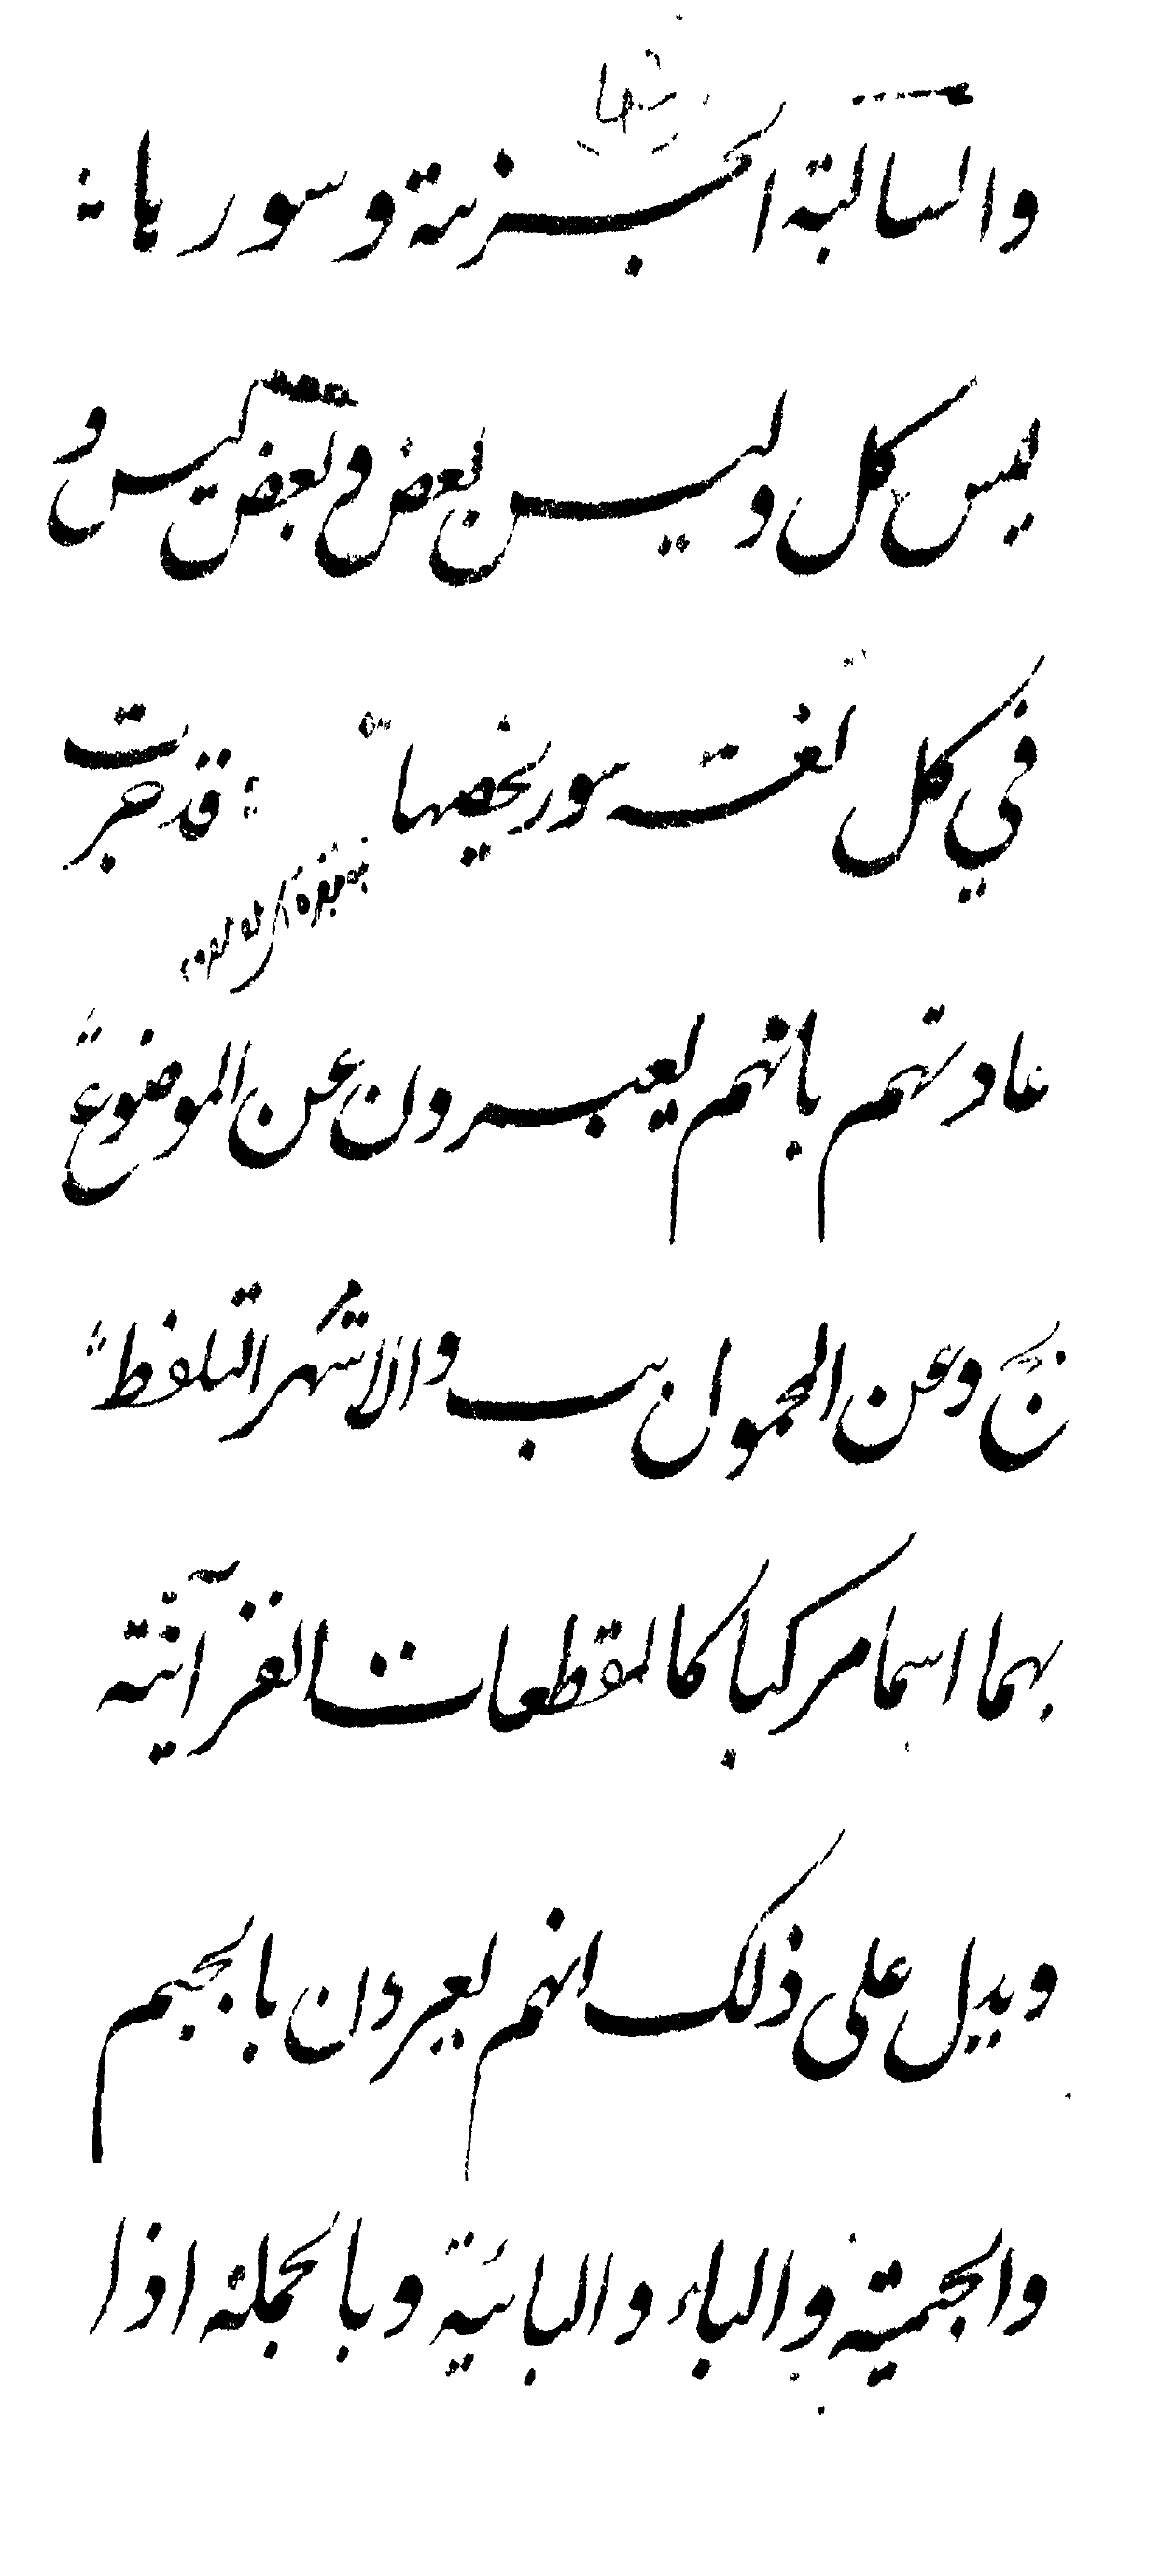 والسالبة الجزئية وسورها
ليس كل وليس بعض وبعض ليس و
في كل لغت سور يخصها قد جرت
عادتهم بانهم يعبرون عن الموضوع
بج وعن المحمول ب والاشهر التلفظ
بهما اسما مركبا كالمقطعات القرآنية
ويدل على ذلك انهم يعبرون بالجيم
والجيمية والباء والبائية وبالجملة اذا